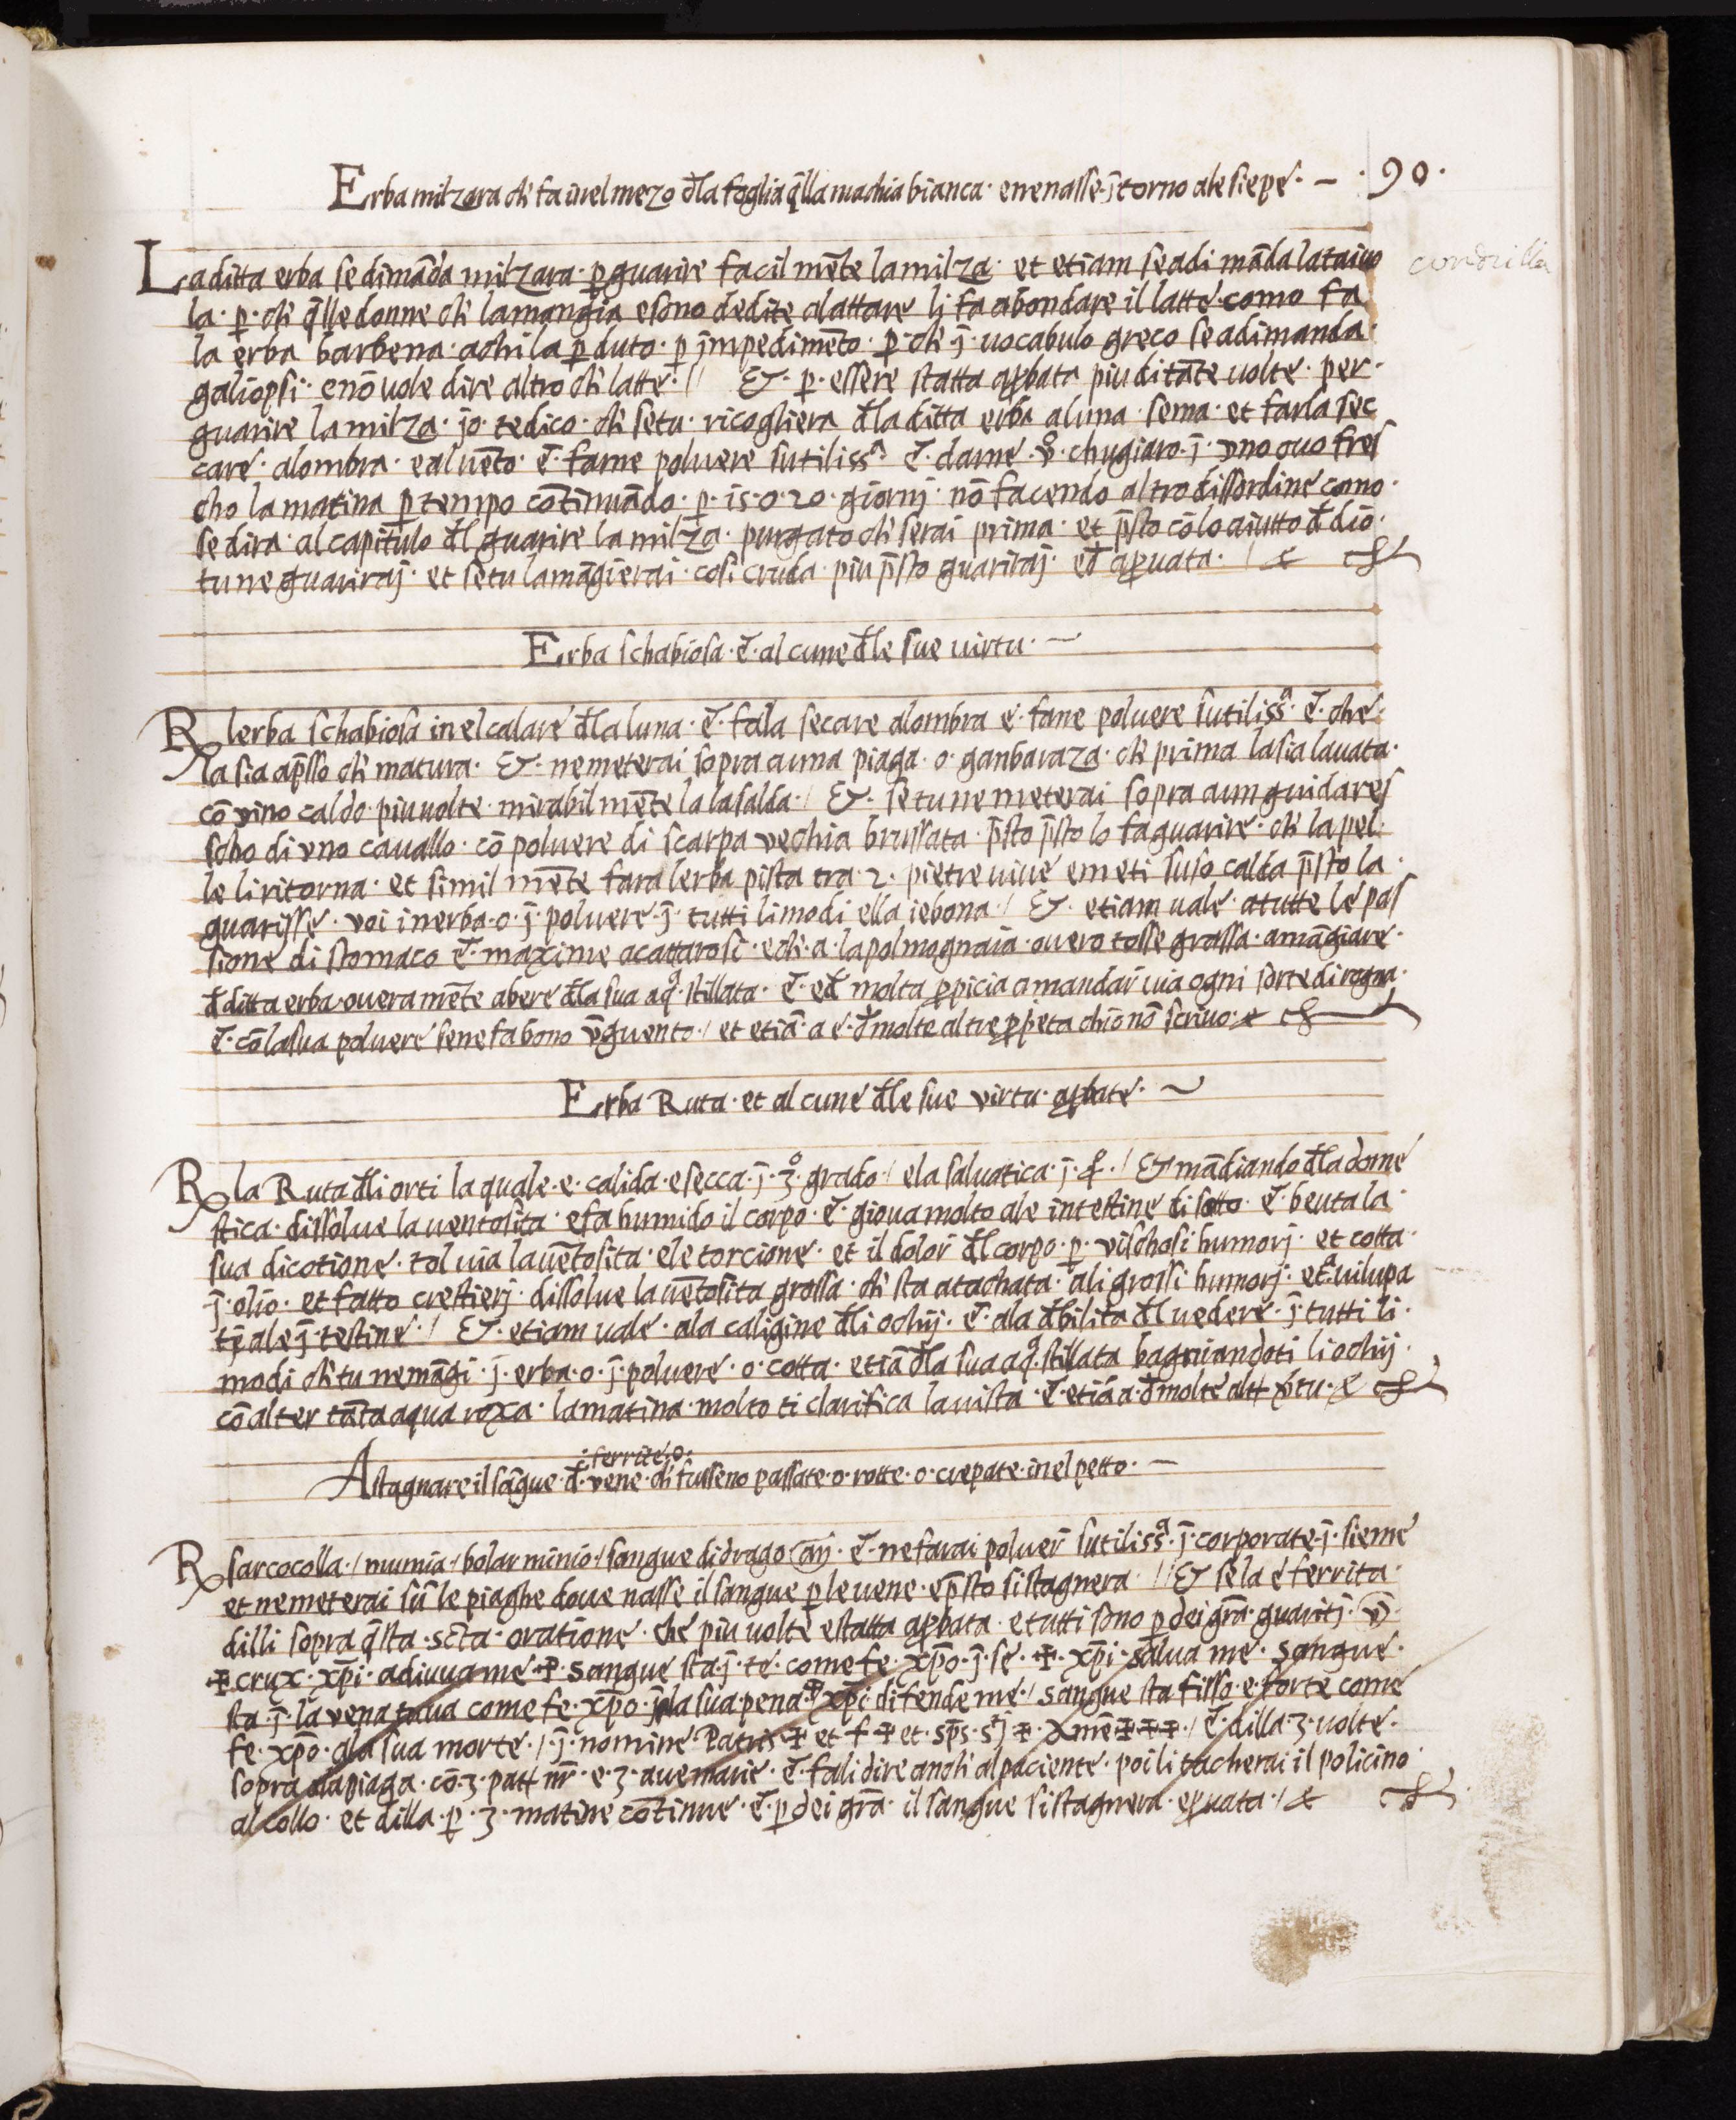 Erba milzara ch̄ fa inel mezo d̄la foglia q̄lla machia bianca · enenasse · j̄torno ale siepe · — · 90 ·
La ditta erba se dimāda milzara · ꝑ guarire facilmēte la milza · et etiam se adimāda lataiuo
condrilla
la · ꝑ · ch̄ q̄lle donne ch̄ la mangia esono dedite alattare lj fa abondare il latte · como fa
la erba barbena · achi la ꝑduto · ꝑ jmpedimēto · ꝑ · ch̄ · j̄ · uocabulo greco se adimanda ·
galiopsi · enō uole dire altro ch̄ latte · // & · ꝑ · essere statta aꝓbata piu di tāte uolte · per ·
guarire la milza · jo · te dico · ch̄ se tu · ricogliera d̄la ditta erba a luna · sema · et farla sec
care · alombra · eal uēto · ē · farne poluere sutilissª · ē · darne · chugiaro · j̄ · vno ouo fres
cho la matina ꝑ tempo cōtinuādo · ꝑ · 15 · o · 20 · giornj · nō facendo altro dissordine como ·
se dira · al capitulo d̄l guarire la milza · purgato ch̄ serai prima · et p̄sto cō lo aiutto d̄ dio ·
tu ne guariraj · et se tu la māgierai · cosi cruda · piu p̄sto guariraj · ed̄ aꝓuata · /
Erba schabiosa · ē · alcune d̄le sue uirtu · —
℞ lerba schabiosa inel calare d̄la luna · ē · falla secare alombra e · fane poluere sutilissª · ē · che ·
la sia ap̄sso ch̄ matura · & · ne meterai sopra a una piaga · o · ganbaraza · ch̄ prima la sia lauata ·
cō vino caldo · piu uolte · mirabilmēte la la salda · / & · se tu ne meterai sopra a un guidares
scho di vno cauallo · cō poluere di scarpa vechia brussata · p̄sto p̄sto lo fa guarire · ch̄ la pel ·
le li ritorna · et similmēte fara lerba pista tra · 2 · pietre uiue e meti suso calda p̄sto la ·
guarisse · voi in erba · o · j̄ · poluere · j̄ · tutti li modi ella ie bona · / & · etiam uale · a tutte le pas
sione di stomaco ē · maxime a cattarosi · e ch̄ · a · la polmognaia · ouero tosse grassa · a māgiare ·
d̄ ditta erba · oueramēte a bere d̄la sua aqª · stillata · ē · ed̄ molta ꝓpicia a mandar uia ogni sorte di rogna ·
ē · cō la sua poluere se ne fa bono v̄guento · / et etiā · a e · d̄ molte altre ꝓpieta chio nō scriuo ·
Erba Ruta · et alcune d̄le sue virtu · aꝓbate · ~
℞ la Ruta d̄li orti la quale · e · calida · e secca · j̄ · 3° · grado · / e la saluatica · j̄ · 4 · / & māgiando d̄la dome
stica · dissolue la uentosita · e fa humido il corpo · ē · gioua molto ale intestine di sotto · ē · beuta la ·
sua dicotione · tol uia la uētosita · e le torcione · et il dolor d̄l corpo · ꝑ · vischosi humorj · et cotta ·
j̄ · olio · et fatto crestierj · dissolue la uētosita grossa · ch̄ sta atachata · ali grossi humorj · et auilupa
tj ale j̄testine · / & · etiam uale · ala caligine d̄li ochij · ē · ala d̄bilita d̄l uedere · j̄ · tutti li ·
modi ch̄ tu ne māgi · j̄ · erba · o · j̄ · poluere · o · cotta · etiā d̄la sua aqª · stillata bagniandoti li ochij ·
cō alter tāta aqua roxa · la matina · molto ti clarifica la uista · ē · etiā a · d̄ molte alt̄ v̄tu ·
· ferrite · o ·
Astagnare il sāgue · d̄ · vene · ch̄ fusseno passate · o · rotte · o · crepate · inel petto · —
℞ sarcocolla · / mumia · / bolarminio · / sangue di drago añ · ē · ne farai poluer̄ sutilissª · j̄ · corporate · j̄ · sieme
et ne meterai sū le piaghe doue nasse il sangue ꝑ le uene · e p̄sto si stagnera · // & se la e ferrita ·
dilli sopra q̄sta · sc̄ta · oratione · che piu uolte e statta aꝓbata · e tutti sono ꝑ dei gr̄a · guaritj · v̄ ·
✠ crux · xp̄i · adiuua me · ✠ · sangue sta · j̄ · te · come fe · xp̄o · j̄ · se · ✠ · xp̄i · salua me · sangue ·
sta · j̄ · la vena tuua come fe · xp̄o · j̄ la sua pena · ✠ xp̄i · difende me · / sangue sta fisso · e · forte come
fe · xp̄o · ala sua morte · / · j̄ · nomine Patris ✠ et · f · ✠ et · sp̄s · sᵗj ✠ · Amē ✠ ✠ ✠ · / ē · dilla · 3 · uolte ·
sopra ala piaga · cō · 3 · patt̄ nr̄ · e · 3 · aue marie · ē · fali dire anch̄ al paciente · poi li tacherai il policino ·
al collo · et dilla · ꝑ · 3 · matine cōtinue · ē · ꝑ dei gr̄a · il sangue si stagnera · eꝓuata · /